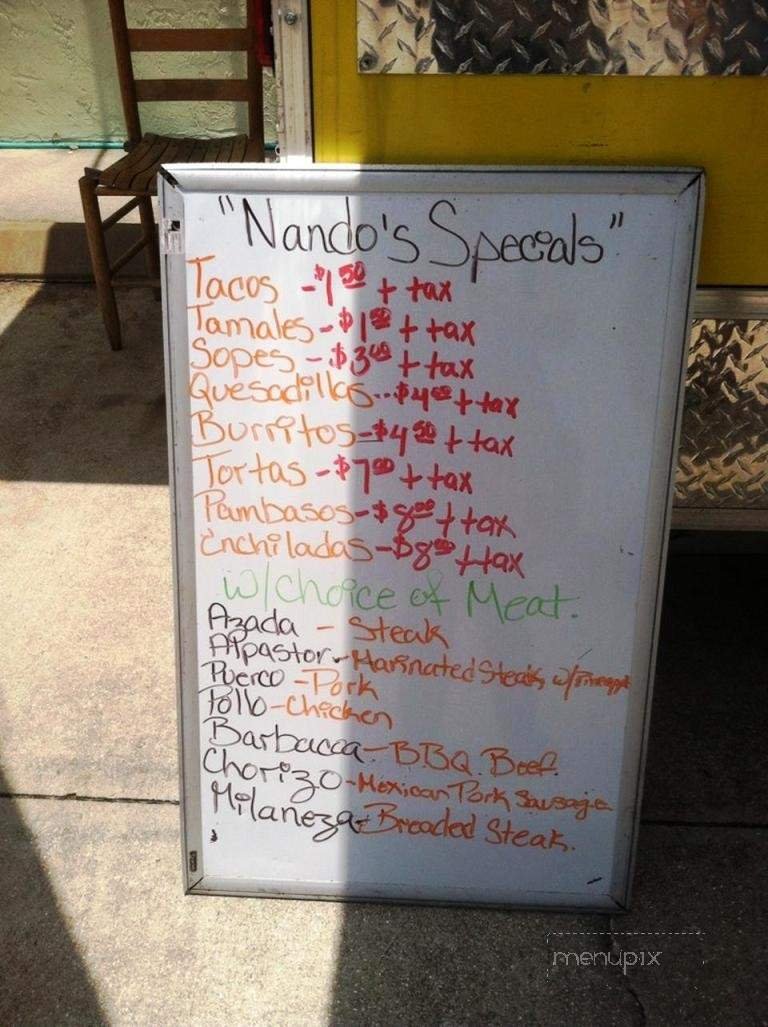 "Nando's Specials"
Tacos - $1.50 + tax
Tamales - $1.50 + tax
Sopes - $3.00 + tax
Quesadillas... $4.00 + tax
Burritos - $4.50 + tax
Tortas - $7.00 + tax
Pambasos - $8.00 + tax
Enchiladas - $8.00 + tax
w/choice of Meat.
Azada - Steak
Alpastor - Marinated Steak w/Pineapple
Puerco - Pork
Pollo - Chicken
Barbacoa - BBQ Beef.
Chorizo - Mexican Pork Sausage
Milaneza - Breaded Steak.
menupix